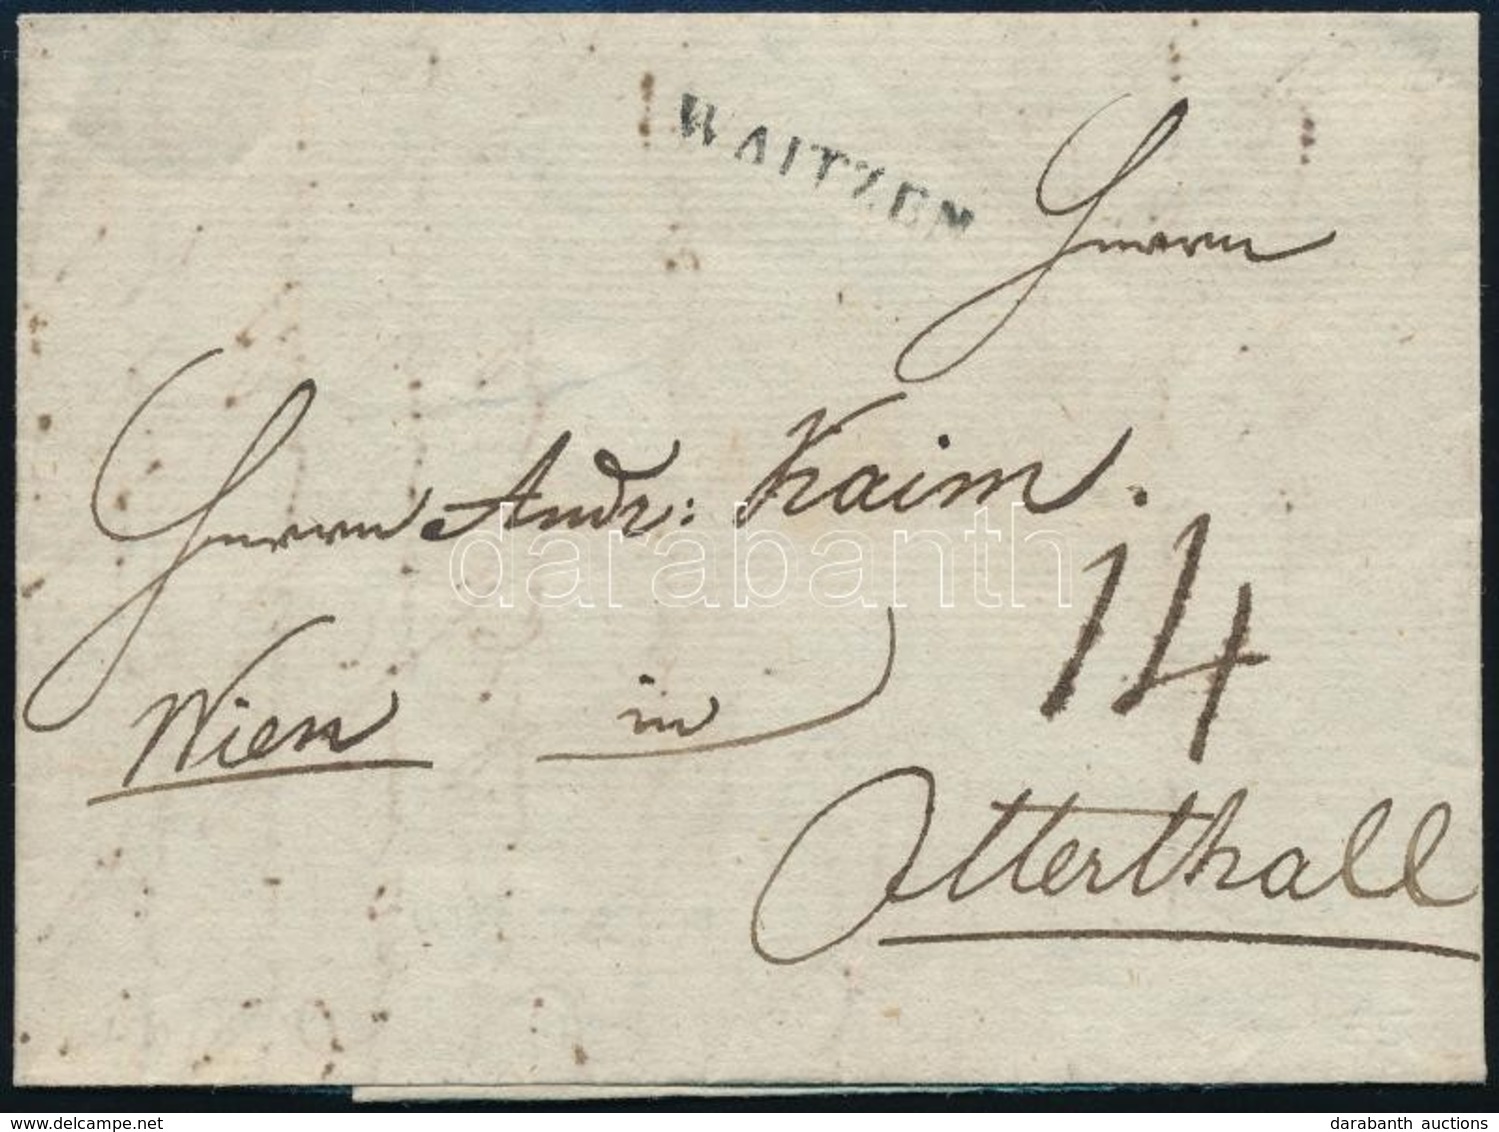 WAITZEN
Herrn
Herrn Andr: Kaim.
14
Wien in
Otterthall
darabanth
delcampe.net
darabanth auctions